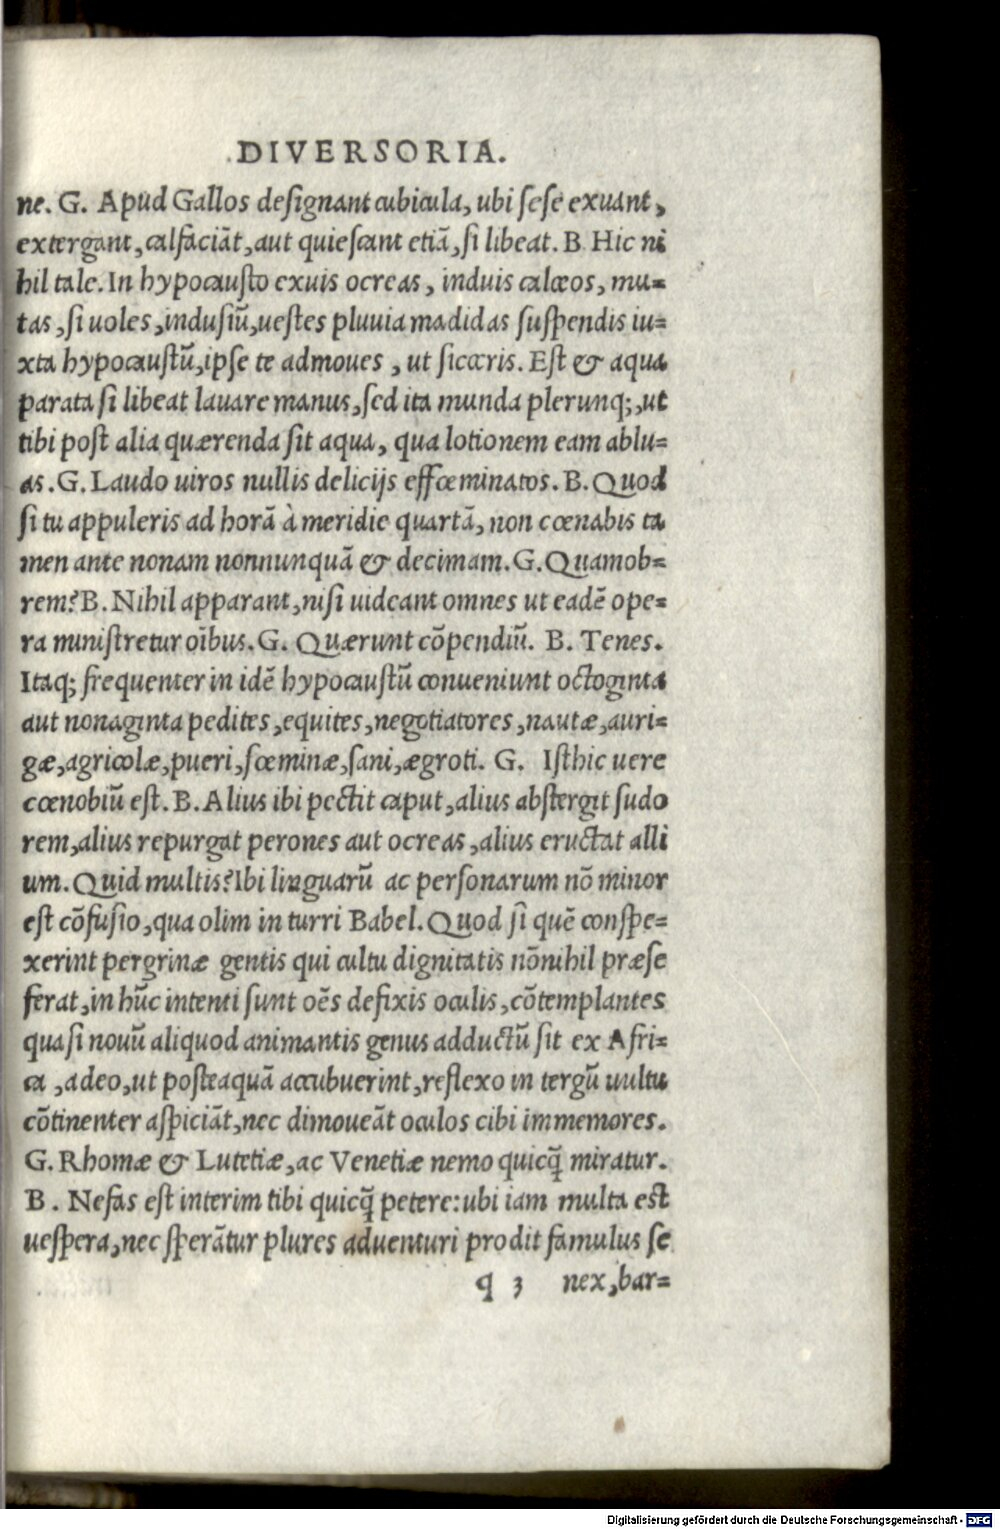 DIVERSORIA.
ne. G. Apud Gallos designant cubicula, ubi sese exuant,
extergant, calfaciāt, aut quiescant etiā, si libeat. B Hic ni
hil tale. In hypocausto exuis ocreas, induis calceos, mu=
tas, si uoles, indusiū, uestes pluuia madidas suspendis iu=
xta hypocaustū, ipse te admoues, ut sicceris. Est & aqua
parata si libeat lauare manus, sed ita munda plerunq;, ut
tibi post alia quærenda sit aqua, qua lotionem eam ablu=
as. G. Laudo uiros nullis delicijs effœminatos. B. Quod
si tu appuleris ad horā à meridie quartā, non cœnabis ta
men ante nonam nonnunquā & decimam. G. Quamob=
rem? B. Nihil apparant, nisi uideant omnes ut eadē ope=
ra ministretur oībus. G. Quærunt cōpendiū. B. Tenes.
Itaq; frequenter in idē hypocaustū conueniunt octoginta
aut nonaginta pedites, equites, negotiatores, nautæ, auri=
gæ, agricolæ, pueri, fœminæ, sani, ægroti. G. Isthic uere
cœnobiū est. B. Alius ibi pectit caput, alius abstergit sudo
rem, alius repurgat perones aut ocreas, alius eructat alli
um. Quid multis? Ibi linguarū ac personarum nō minor
est cōfusio, qua olim in turri Babel. Quod si quē conspe=
xerint pergrinæ gentis qui cultu dignitatis nōnihil præse
ferat, in hūc intenti sunt oēs defixis oculis, cōtemplantes
quasi nouū aliquod animantis genus adductū sit ex Afri=
ca, adeo, ut posteaquā accubuerint, reflexo in tergū uultu
cōtinenter aspiciāt, nec dimoueāt oculos cibi immemores.
G. Rhomæ & Lutetiæ, ac Venetiæ nemo quicq̄ miratur.
B. Nefas est interim tibi quicq̄ petere: ubi iam multa est
uespera, nec sperātur plures aduenturi prodit famulus se
q 3 nex, bar=
Digitalisierung gefördert durch die Deutsche Forschungsgemeinschaft - DFG